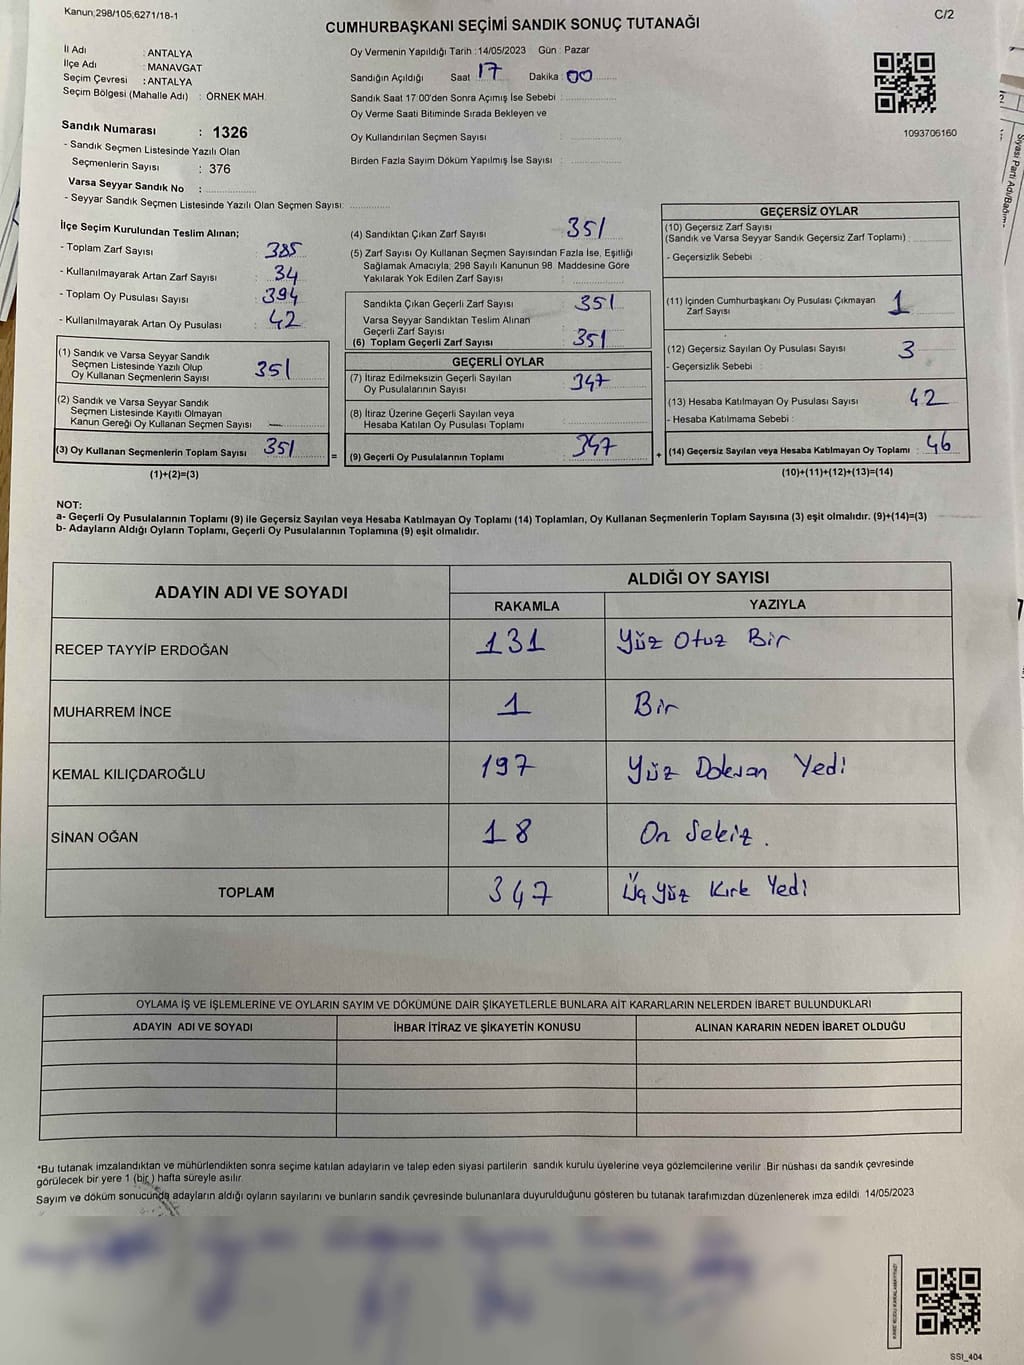 Kanun;298/105;6271/18-1
C/2
CUMHURBAŞKANI SEÇİMİ SANDIK SONUÇ TUTANAĞI
İl Adı : ANTALYA
İlçe Adı : MANAVGAT
Seçim Çevresi : ANTALYA
Seçim Bölgesi (Mahalle Adı) : ÖRNEK MAH.
Sandık Numarası : 1326
- Sandık Seçmen Listesinde Yazılı Olan
Seçmenlerin Sayısı : 376
Varsa Seyyar Sandık No :
- Seyyar Sandık Seçmen Listesinde Yazılı Olan Seçmen Sayısı:
Oy Vermenin Yapıldığı Tarih :14/05/2023 Gün : Pazar
Sandığın Açıldığı Saat 17 Dakika : 00
Sandık Saat 17:00'den Sonra Açımış İse Sebebi :
Oy Verme Saati Bitiminde Sırada Bekleyen ve
Oy Kullandırılan Seçmen Sayısı :
Birden Fazla Sayım Döküm Yapılmış İse Sayısı :
1093706160
İlçe Seçim Kurulundan Teslim Alınan;
- Toplam Zarf Sayısı : 385
- Kullanılmayarak Artan Zarf Sayısı : 34
- Toplam Oy Pusulası Sayısı : 394
- Kullanılmayarak Artan Oy Pusulası : 42
(1) Sandık ve Varsa Seyyar Sandık
Seçmen Listesinde Yazılı Olup
Oy Kullanan Seçmenlerin Sayısı : 351
(2) Sandık ve Varsa Seyyar Sandık
Seçmen Listesinde Kayıtlı Olmayan
Kanun Gereği Oy Kullanan Seçmen Sayısı : —
(3) Oy Kullanan Seçmenlerin Toplam Sayısı 351 =
(1)+(2)=(3)
(4) Sandıktan Çıkan Zarf Sayısı : 351
(5) Zarf Sayısı Oy Kullanan Seçmen Sayısından Fazla İse, Eşitliği
Sağlamak Amacıyla, 298 Sayılı Kanunun 98. Maddesine Göre
Yakılarak Yok Edilen Zarf Sayısı :
Sandıkta Çıkan Geçerli Zarf Sayısı : 351
Varsa Seyyar Sandıktan Teslim Alınan
Geçerli Zarf Sayısı :
(6) Toplam Geçerli Zarf Sayısı : 351
GEÇERLİ OYLAR
(7) İtiraz Edilmeksizin Geçerli Sayılan
Oy Pusulalarının Sayısı : 347
(8) İtiraz Üzerine Geçerli Sayılan veya
Hesaba Katılan Oy Pusulası Toplamı :
(9) Geçerli Oy Pusulalarının Toplamı : 347 +
GEÇERSİZ OYLAR
(10) Geçersiz Zarf Sayısı
(Sandık ve Varsa Seyyar Sandık Geçersiz Zarf Toplamı) :
- Geçersizlik Sebebi :
(11) İçinden Cumhurbaşkanı Oy Pusulası Çıkmayan
Zarf Sayısı : 1
(12) Geçersiz Sayılan Oy Pusulası Sayısı : 3
- Geçersizlik Sebebi :
(13) Hesaba Katılmayan Oy Pusulası Sayısı : 42
- Hesaba Katılmama Sebebi :
(14) Geçersiz Sayılan veya Hesaba Katılmayan Oy Toplamı : 46
(10)+(11)+(12)+(13)=(14)
NOT:
a- Geçerli Oy Pusulalarının Toplamı (9) ile Geçersiz Sayılan veya Hesaba Katılmayan Oy Toplamı (14) Toplamları, Oy Kullanan Seçmenlerin Toplam Sayısına (3) eşit olmalıdır. (9)+(14)=(3)
b- Adayların Aldığı Oyların Toplamı, Geçerli Oy Pusulalarının Toplamına (9) eşit olmalıdır.
ADAYIN ADI VE SOYADI
ALDIĞI OY SAYISI
RAKAMLA YAZIYLA
RECEP TAYYİP ERDOĞAN 131 Yüz Otuz Bir
MUHARREM İNCE 1 Bir
KEMAL KILIÇDAROĞLU 197 Yüz Doksan Yedi
SİNAN OĞAN 18 On Sekiz.
TOPLAM 347 Üç Yüz Kırk Yedi
OYLAMA İŞ VE İŞLEMLERİNE VE OYLARIN SAYIM VE DÖKÜMÜNE DAİR ŞİKAYETLERLE BUNLARA AİT KARARLARIN NELERDEN İBARET BULUNDUKLARI
ADAYIN ADI VE SOYADI İHBAR İTİRAZ VE ŞİKAYETİN KONUSU ALINAN KARARIN NEDEN İBARET OLDUĞU
*Bu tutanak imzalandıktan ve mühürlendikten sonra seçime katılan adayların ve talep eden siyasi partilerin sandık kurulu üyelerine veya gözlemcilerine verilir. Bir nüshası da sandık çevresinde
görülecek bir yere 1 (bir ) hafta süreyle asılır.
Sayım ve döküm sonucunda adayların aldığı oyların sayılarını ve bunların sandık çevresinde bulunanlara duyurulduğunu gösteren bu tutanak tarafımızdan düzenlenerek imza edildi. 14/05/2023
SSI_404